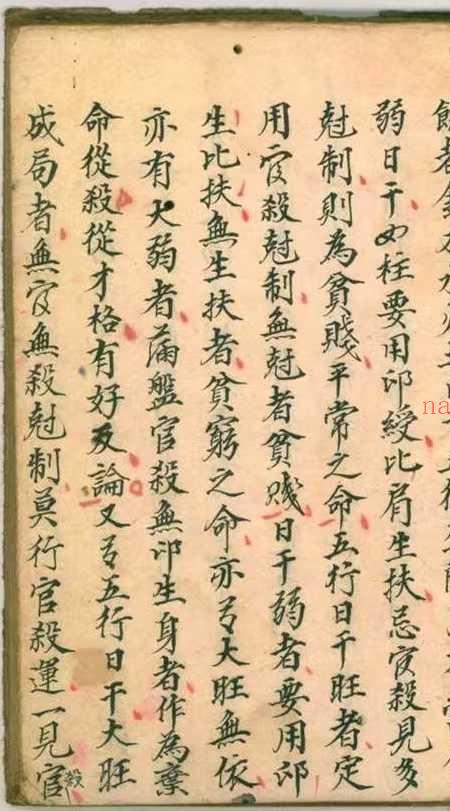 弱日干四柱要用卬綬比肩生扶忌官殺見多
尅制則為貧賤平常之命五行日干旺者定
用官殺尅制無尅者貧賤日干弱者要用卬
生比扶無生扶者貧窮之命亦有大旺無依
亦有大弱者滿盤官殺無卬生身者作為棄
命從殺從才格有好反論又有五行日干大旺
成局者無官無殺尅制莫行官殺運一見官殺
na